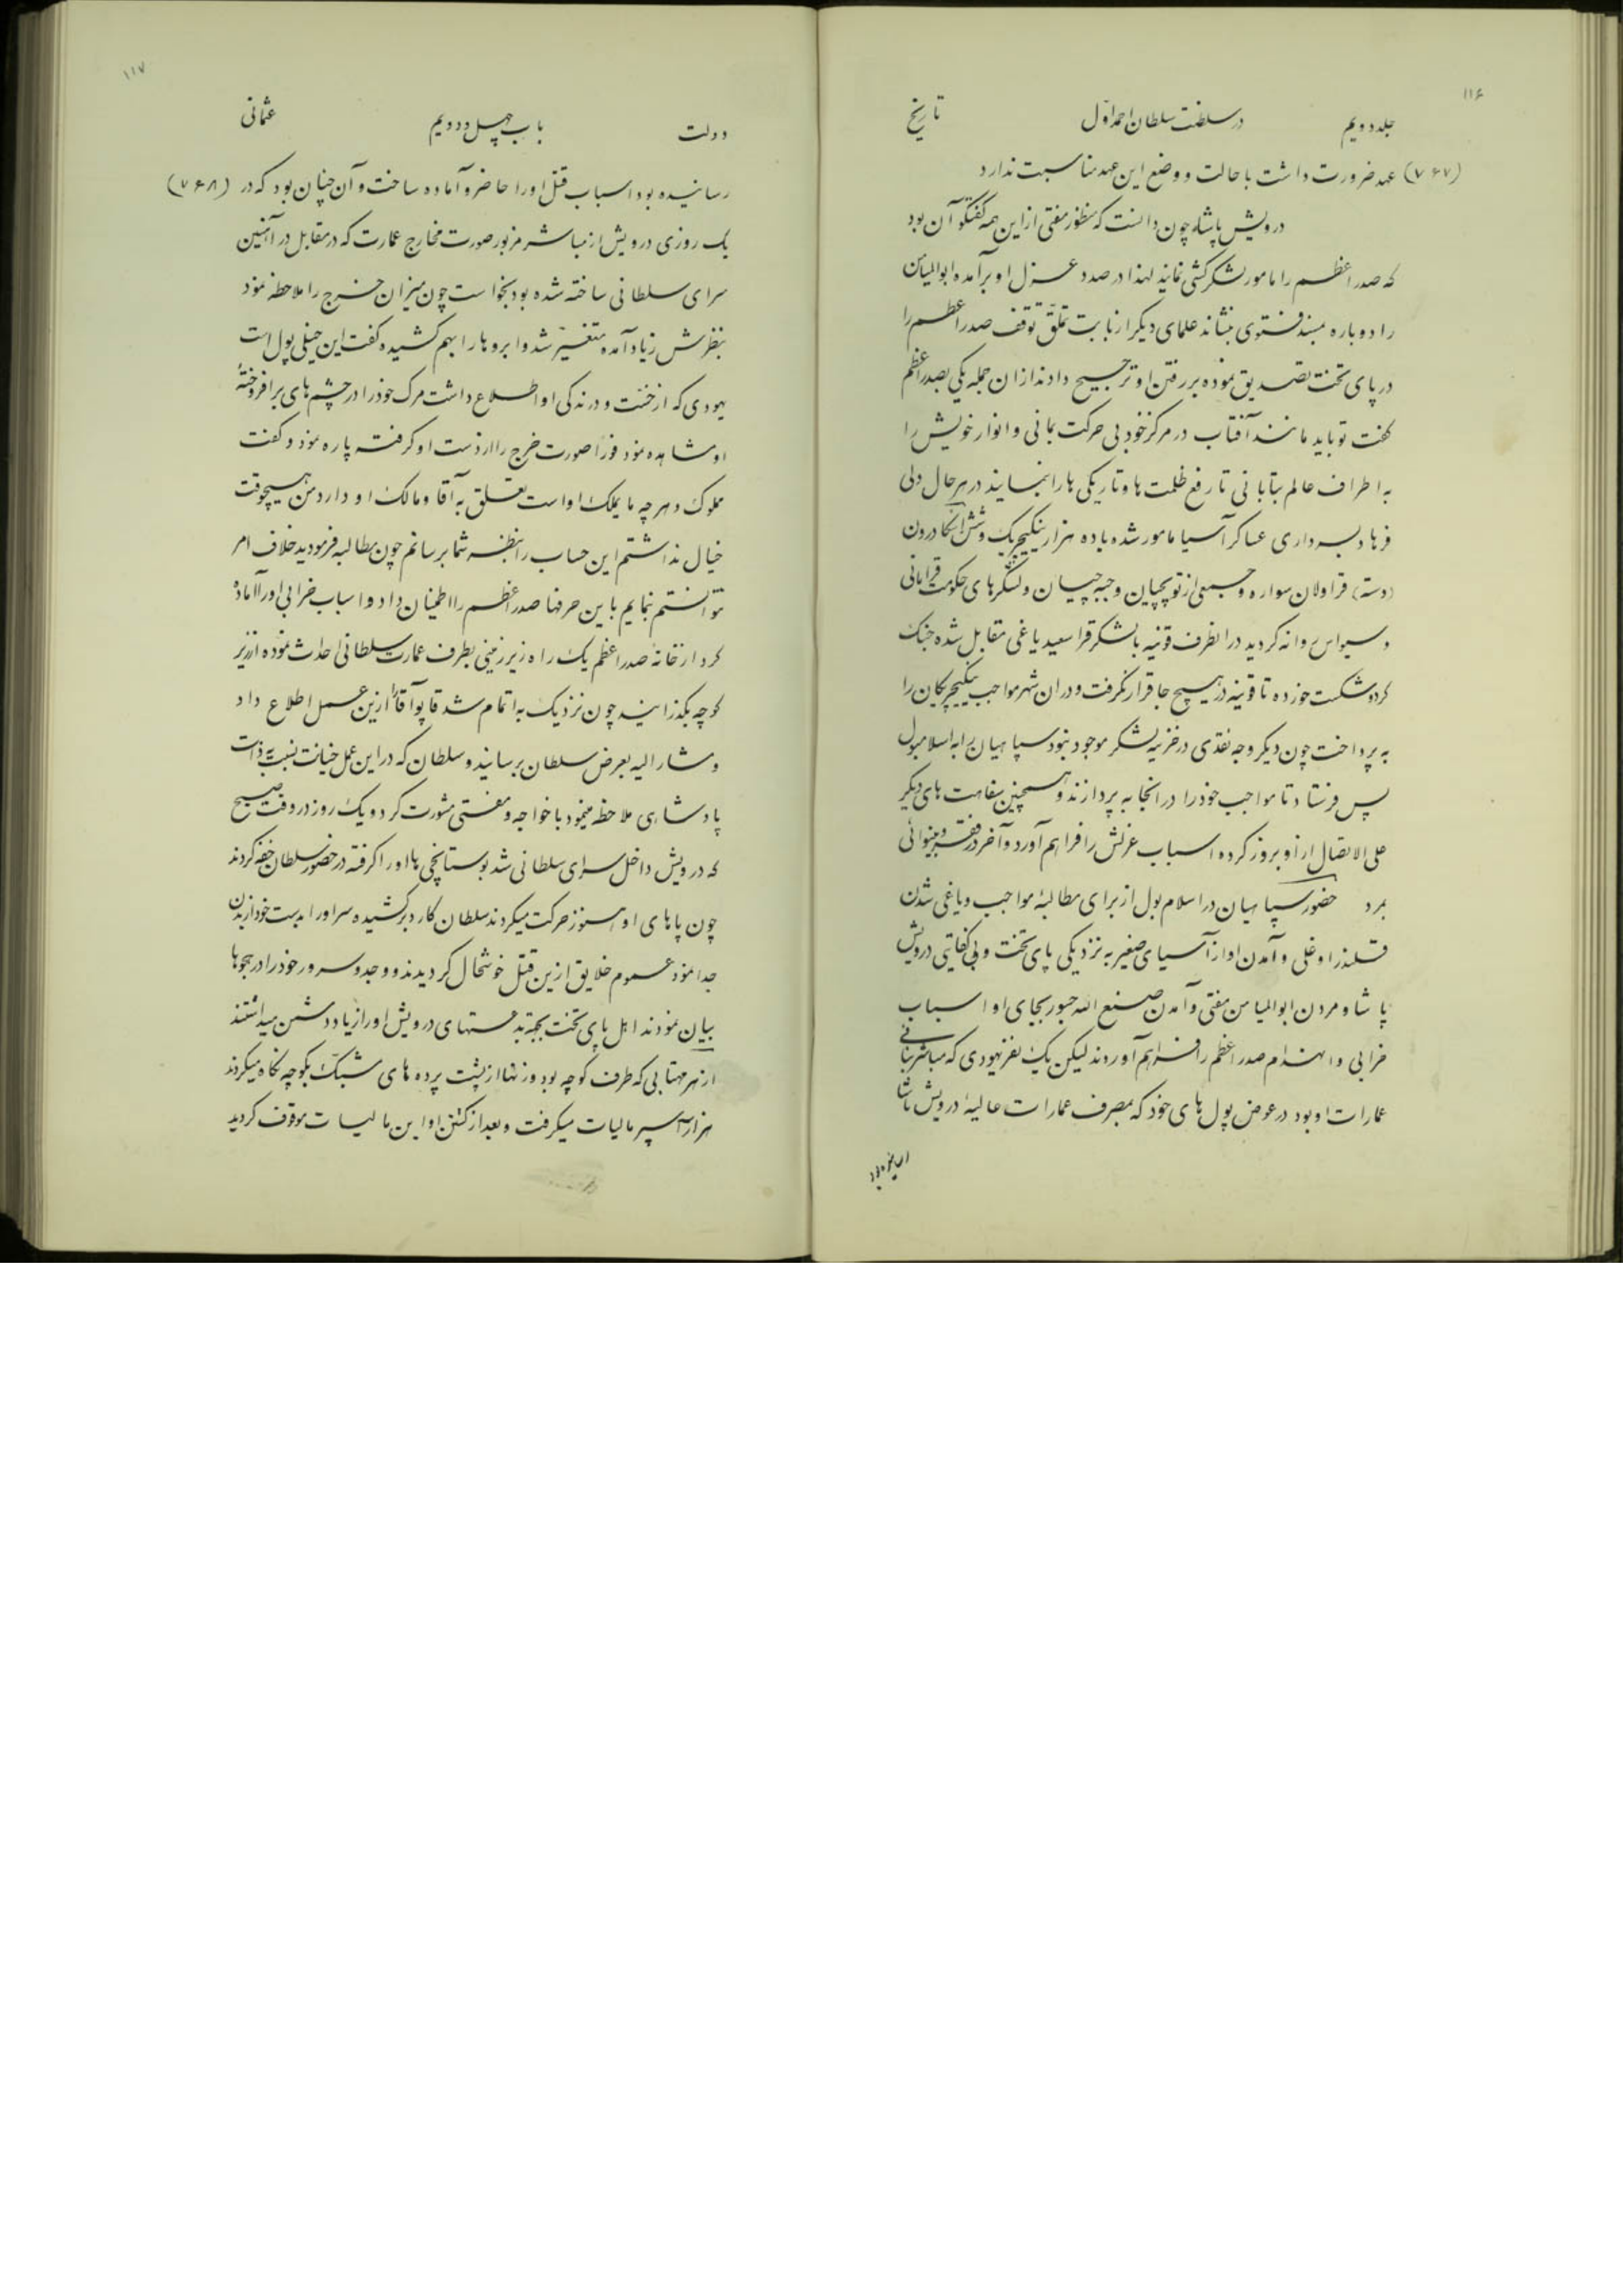 ۱۱۶
جلد دویم در سلطنت سلطان احمد اول تاریخ
(۷۶۷) عهد ضرورت داشت با حالت و وضع این عهد مناسبت ندارد
درویش پاشا چون دانست که منظور مفتی از این همه گفتگو آن بود
که صدر اعظم را مامور لشکرکشی نماید لهذا در صدد عزل او برآمده ابوالمیامن
را دوباره بمسند فتوی بنشاند علمای دیگر از بابت تملق توقف صدر اعظم را
در پای تخت تصدیق نموده بر رفتن او ترجیح دادند از ان جمله یکی بصدر اعظم
گفت تو باید مانند آفتاب در مرکز خود بی حرکت بمانی و انوار خویش را
به اطراف عالم بتابانی تا رفع ظلمت ها و تاریکی ها را بنمایند در هر حال ولی
فرهاد بسرداری عساکر آسیا مامور شده با ده هزار ینکیچریک و شش اسکادرون
(دسته) قراولان سواره و جمعی از توپچیان و جبه چیان و لشگرهای حکومت قرامانی
و سیواس روانه گردید در انطرف قونیه با لشکر قرا سعید یاغی مقابل شده جنک
کرد و شکست خورده تا قونیه در هیچ جا قرار نگرفت و در ان شهر مواجب ینکیچریکان را
به پرداخت چون دیگر وجه نقدی در خزینه لشکر موجود نبود سپاهیان را به اسلامبول
پس فرستاد تا مواجب خود را در انجا به پردازند و همچنین سفاهت های دیگر
علی الاتصال از او بروز کرده اسباب عزلش را فراهم آورد و آخر در فقر و بینوائی
بمرد حضور سپاهیان در اسلام بول از برای مطالبهٔ مواجب و یاغی شدن
قلندر اوغلی و آمدن او از آسیای صغیر به نزدیکی پای تخت و بی کفایتی درویش
پاشا و مردن ابوالمیامن مفتی و آمدن صنع الله جبور بجای او اسباب
خرابی و انهدام صدر اعظم را فراهم آوردند لیکن یک نفر یهودی که مباشر بنائی
عمارات او بود در عوض پول های خود که بمصرف عمارات عالیهٔ درویش پاشا
۱۱۷
دولت باب چهل و دویم عثمانی
رسانیده بود اسباب قتل او را حاضر و آماده ساخت و آن چنان بود که در (۷۶۸)
یک روزی درویش از مباشر مزبور صورت مخارج عمارت که در مقابل در آهنین
سرای سلطانی ساخته شده بود بخواست چون میزان خرج را ملاحظه نمود
بنظرش زیاد آمده متغیر شد و ابروها را بهم کشیده گفت این خیلی پول است
یهودی که از خست و درندگی او اطلاع داشت مرک خود را در چشم های برافروختهٔ
او مشاهده نمود فوراً صورت خرج را از دست او گرفته پاره نمود و گفت
مملوک و هر چه ما یملک او است تعلق به آقا و مالک او دارد من هیچوقت
خیال نداشتم این حساب را بنظر شما برسانم چون مطالبه فرمودید خلاف امر
نتوانستم نمایم با این حرفها صدر اعظم را اطمینان داد و اسباب خرابی او را آماده
کرد از خانهٔ صدر اعظم یک راه زیرزمینی بطرف عمارت سلطانی احداث نموده از زیر
کوچه بگذرانید چون نزدیک به اتمام شد قاپو آقا را ازین عمل اطلاع داد
و مشار الیه بعرض سلطان برسانید و سلطان که در این عمل خیانت نسبت به ذات
پادشاهی ملاحظه مینمود با خواجه و مفتی مشورت کرد و یک روز در وقت صبح
که درویش داخل سرای سلطانی شد بوستانچی ها او را گرفته در حضور سلطان خفه کردند
چون پاهای او هنوز حرکت میکردند سلطان کارد برکشیده سر او را بدست خود از بدن
جدا نمود عموم خلایق ازین قتل خوشحال گردیدند و وجد و سرور خود را در هجوها
بیان نمودند اهل پای تخت بجهة بدعتهای درویش او را زیاد دشمن میداشتند
از هر مهتابی که طرف کوچه بود و زنها از پشت پرده های مشبک بکوچه نگاه میکردند
هزار آسپر مالیات میگرفت و بعد از کشتن او این مالیات موقوف گردید